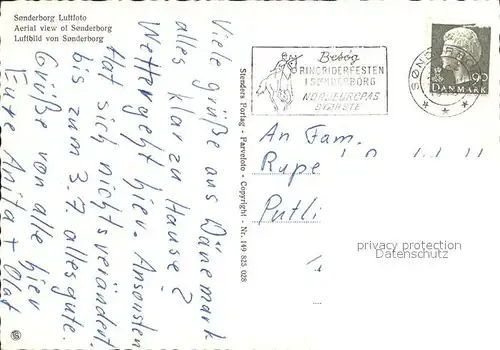 Sønderborg Luftfoto
Aerial view of Sønderborg
Luftbild von Sønderborg
Viele grüße aus Dänemark
alles klar zu Hause?
Wetter geht hier. Ansonsten
Hat sich nichts verändert
bis zum 3.7. alles gute.
Grüße von alle hier
Eure Anita + Olaf
Stenders Forlag - Farvefoto - Copyright - Nr. 149 825 028
Besøg
RINGRIDERFESTEN
I SØNDERBORG
NORDEUROPAS
STØRSTE
SØNDERBORG
90
DANMARK
An Fam.
Rupe
Putli
privacy protection
Datenschutz